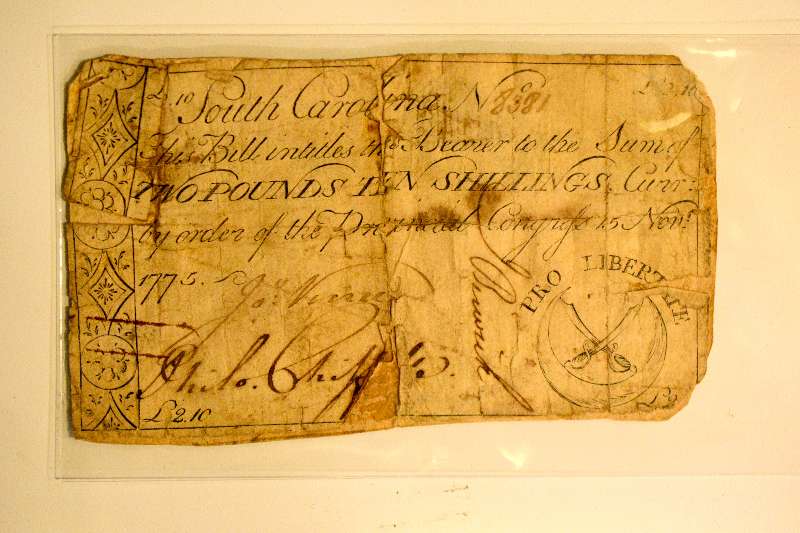 £2.10 South Carolina. No 8381 £2.10
This Bill intitles the Bearer to the Sum of
TWO POUNDS TEN SHILLINGS, Curr:
by order of the Provincial Congress 15 Novr.
1775.
PRO LIBERTATE
Philo.
£2.10